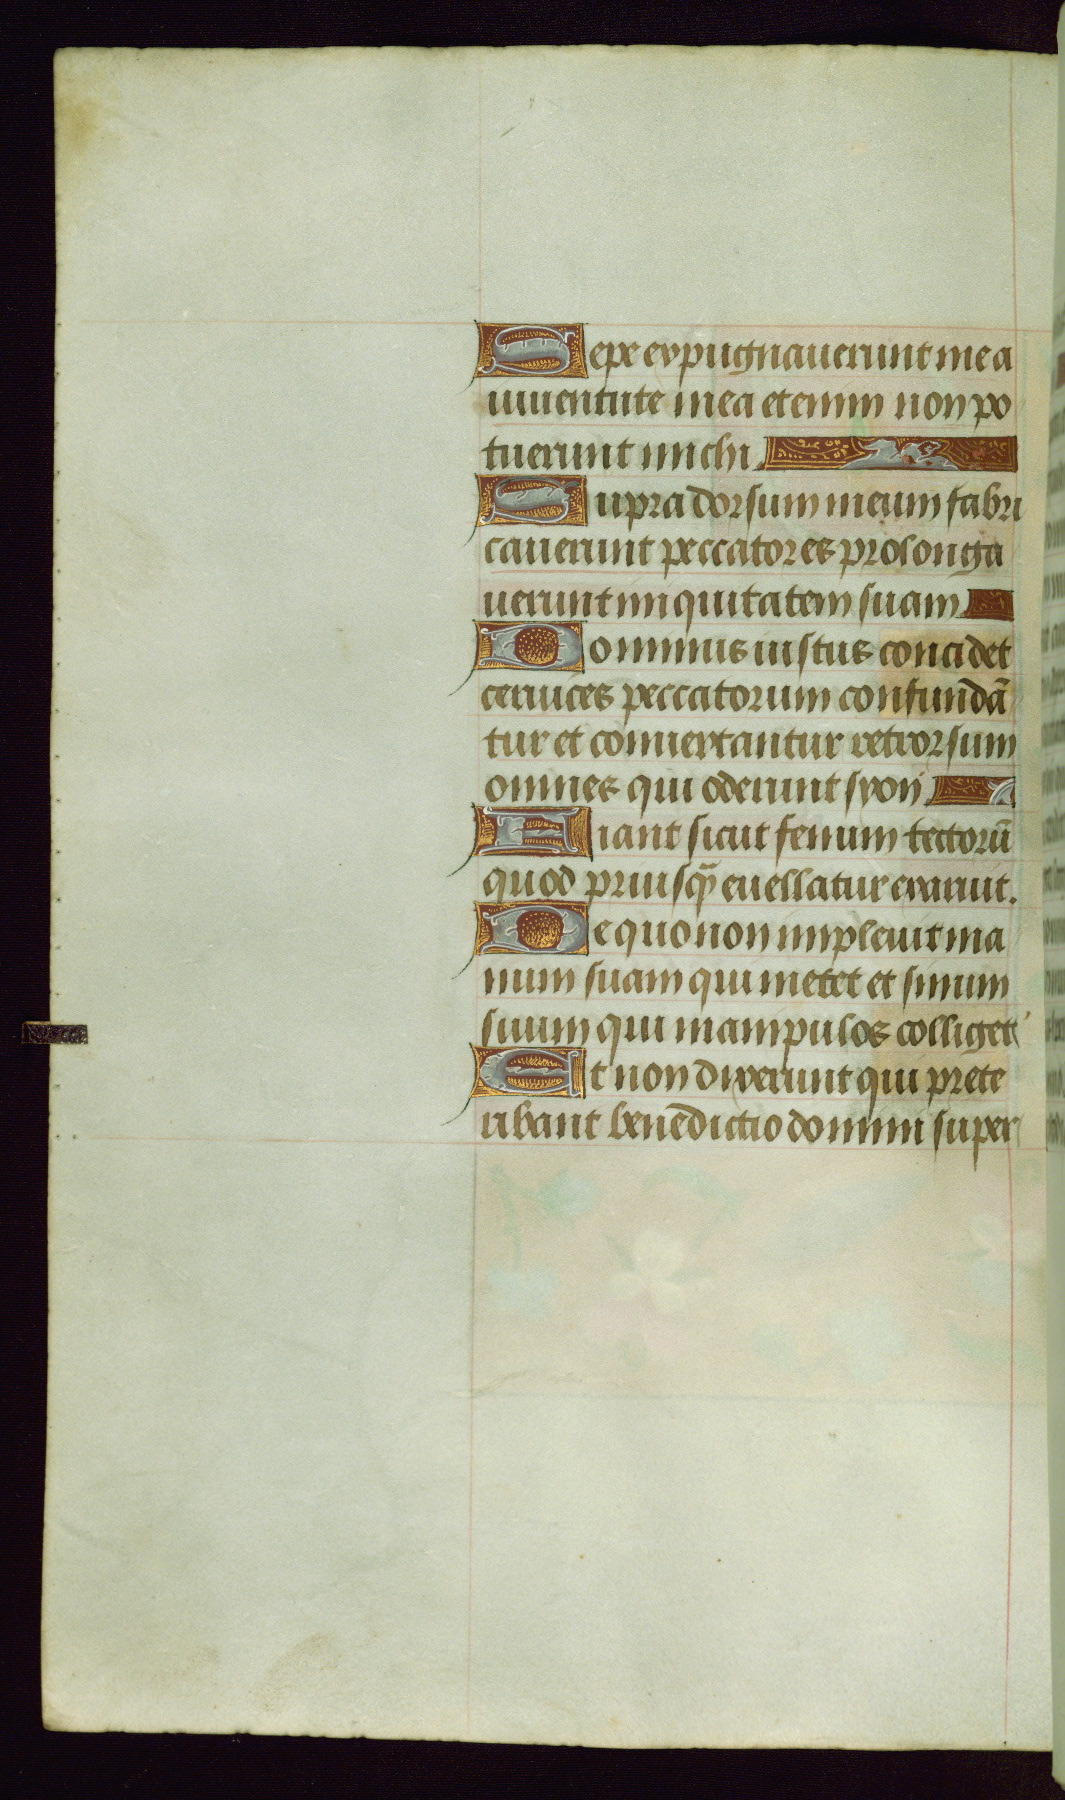 Sepe expugnauerunt me a
iuuentute mea etenim non po
tuerunt michi
Supra dorsum meum fabri
cauerunt peccatores prolonga
uerunt iniquitatem suam
Dominus iustus concidet
ceruices peccatorum confundā
tur et conuertantur retrorsum
omnes qui oderunt syon
Fiant sicut fenum tectorū
quod priusq̄ euellatur exaruit.
De quo non impleuit ma
num suam qui metet et sinum
suum qui manipulos colliget
Et non dixerunt qui prete
ribant benedictio domini super